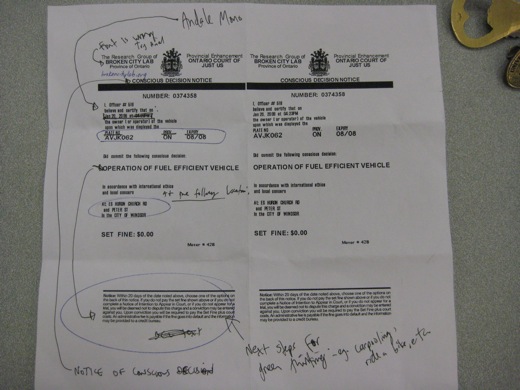 Andale Mono
Font is wrong
Try Arial
The Research Group of
BROKEN CITY LAB
Province of Ontario
Provincial Enhancement
ONTARIO COURT OF
JUST US
brokencitylab.org
CONSCIOUS DECISION NOTICE
NUMBER: 0374358
I, Officer ## 616
believe and certify that on
Jan 20, 2009
the owner (or operator) of the vehicle
upon which was displayed the
PLATE NO PROV. EXPIRY
AVJK062 ON 08/08
Did commit the following conscious decision
OPERATION OF FUEL EFFICIENT VEHICLE
In accordance with international ethics
and local concern
At the following location:
HI. EX HURON CHURCH RD
and PETER ST
in the CITY OF WINDSOR
SET FINE: $0.00
Mover # 426
Notice: Within 20 days of the date noted above, choose one of the options on
the back of this notice. If you do not pay the set fine shown above or if you do not
complete a Notice of Intention to Appear in Court, or if you do not appear for a
NOTICE OF CONSCIOUS DECISION
The Research Group of
BROKEN CITY LAB
Province of Ontario
Provincial Enhancement
ONTARIO COURT OF
JUST US
CONSCIOUS DECISION NOTICE
NUMBER: 0374358
I, Officer ## 616
believe and certify that on
the owner (or operator) of the vehicle
upon which was displayed the
PLATE NO PROV. EXPIRY
AVJK062 ON 08/08
Did commit the following conscious decision
OPERATION OF FUEL EFFICIENT VEHICLE
In accordance with international ethics
and local concern
HI. EX HURON CHURCH RD
and PETER ST
in the CITY OF WINDSOR
SET FINE: $0.00
Mover # 426
Notice: Within 20 days of the date noted above, choose one of the options on
the back of this notice. If you do not pay the set fine shown above or if you do not
complete a Notice of Intention to Appear in Court, or if you do not appear for a
Next steps for
green thinking - eg. carpooling,
ride a bike, etc.